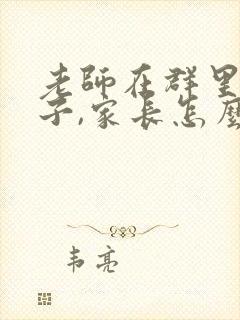 老師在群里
子,家長怎麼
韦亮